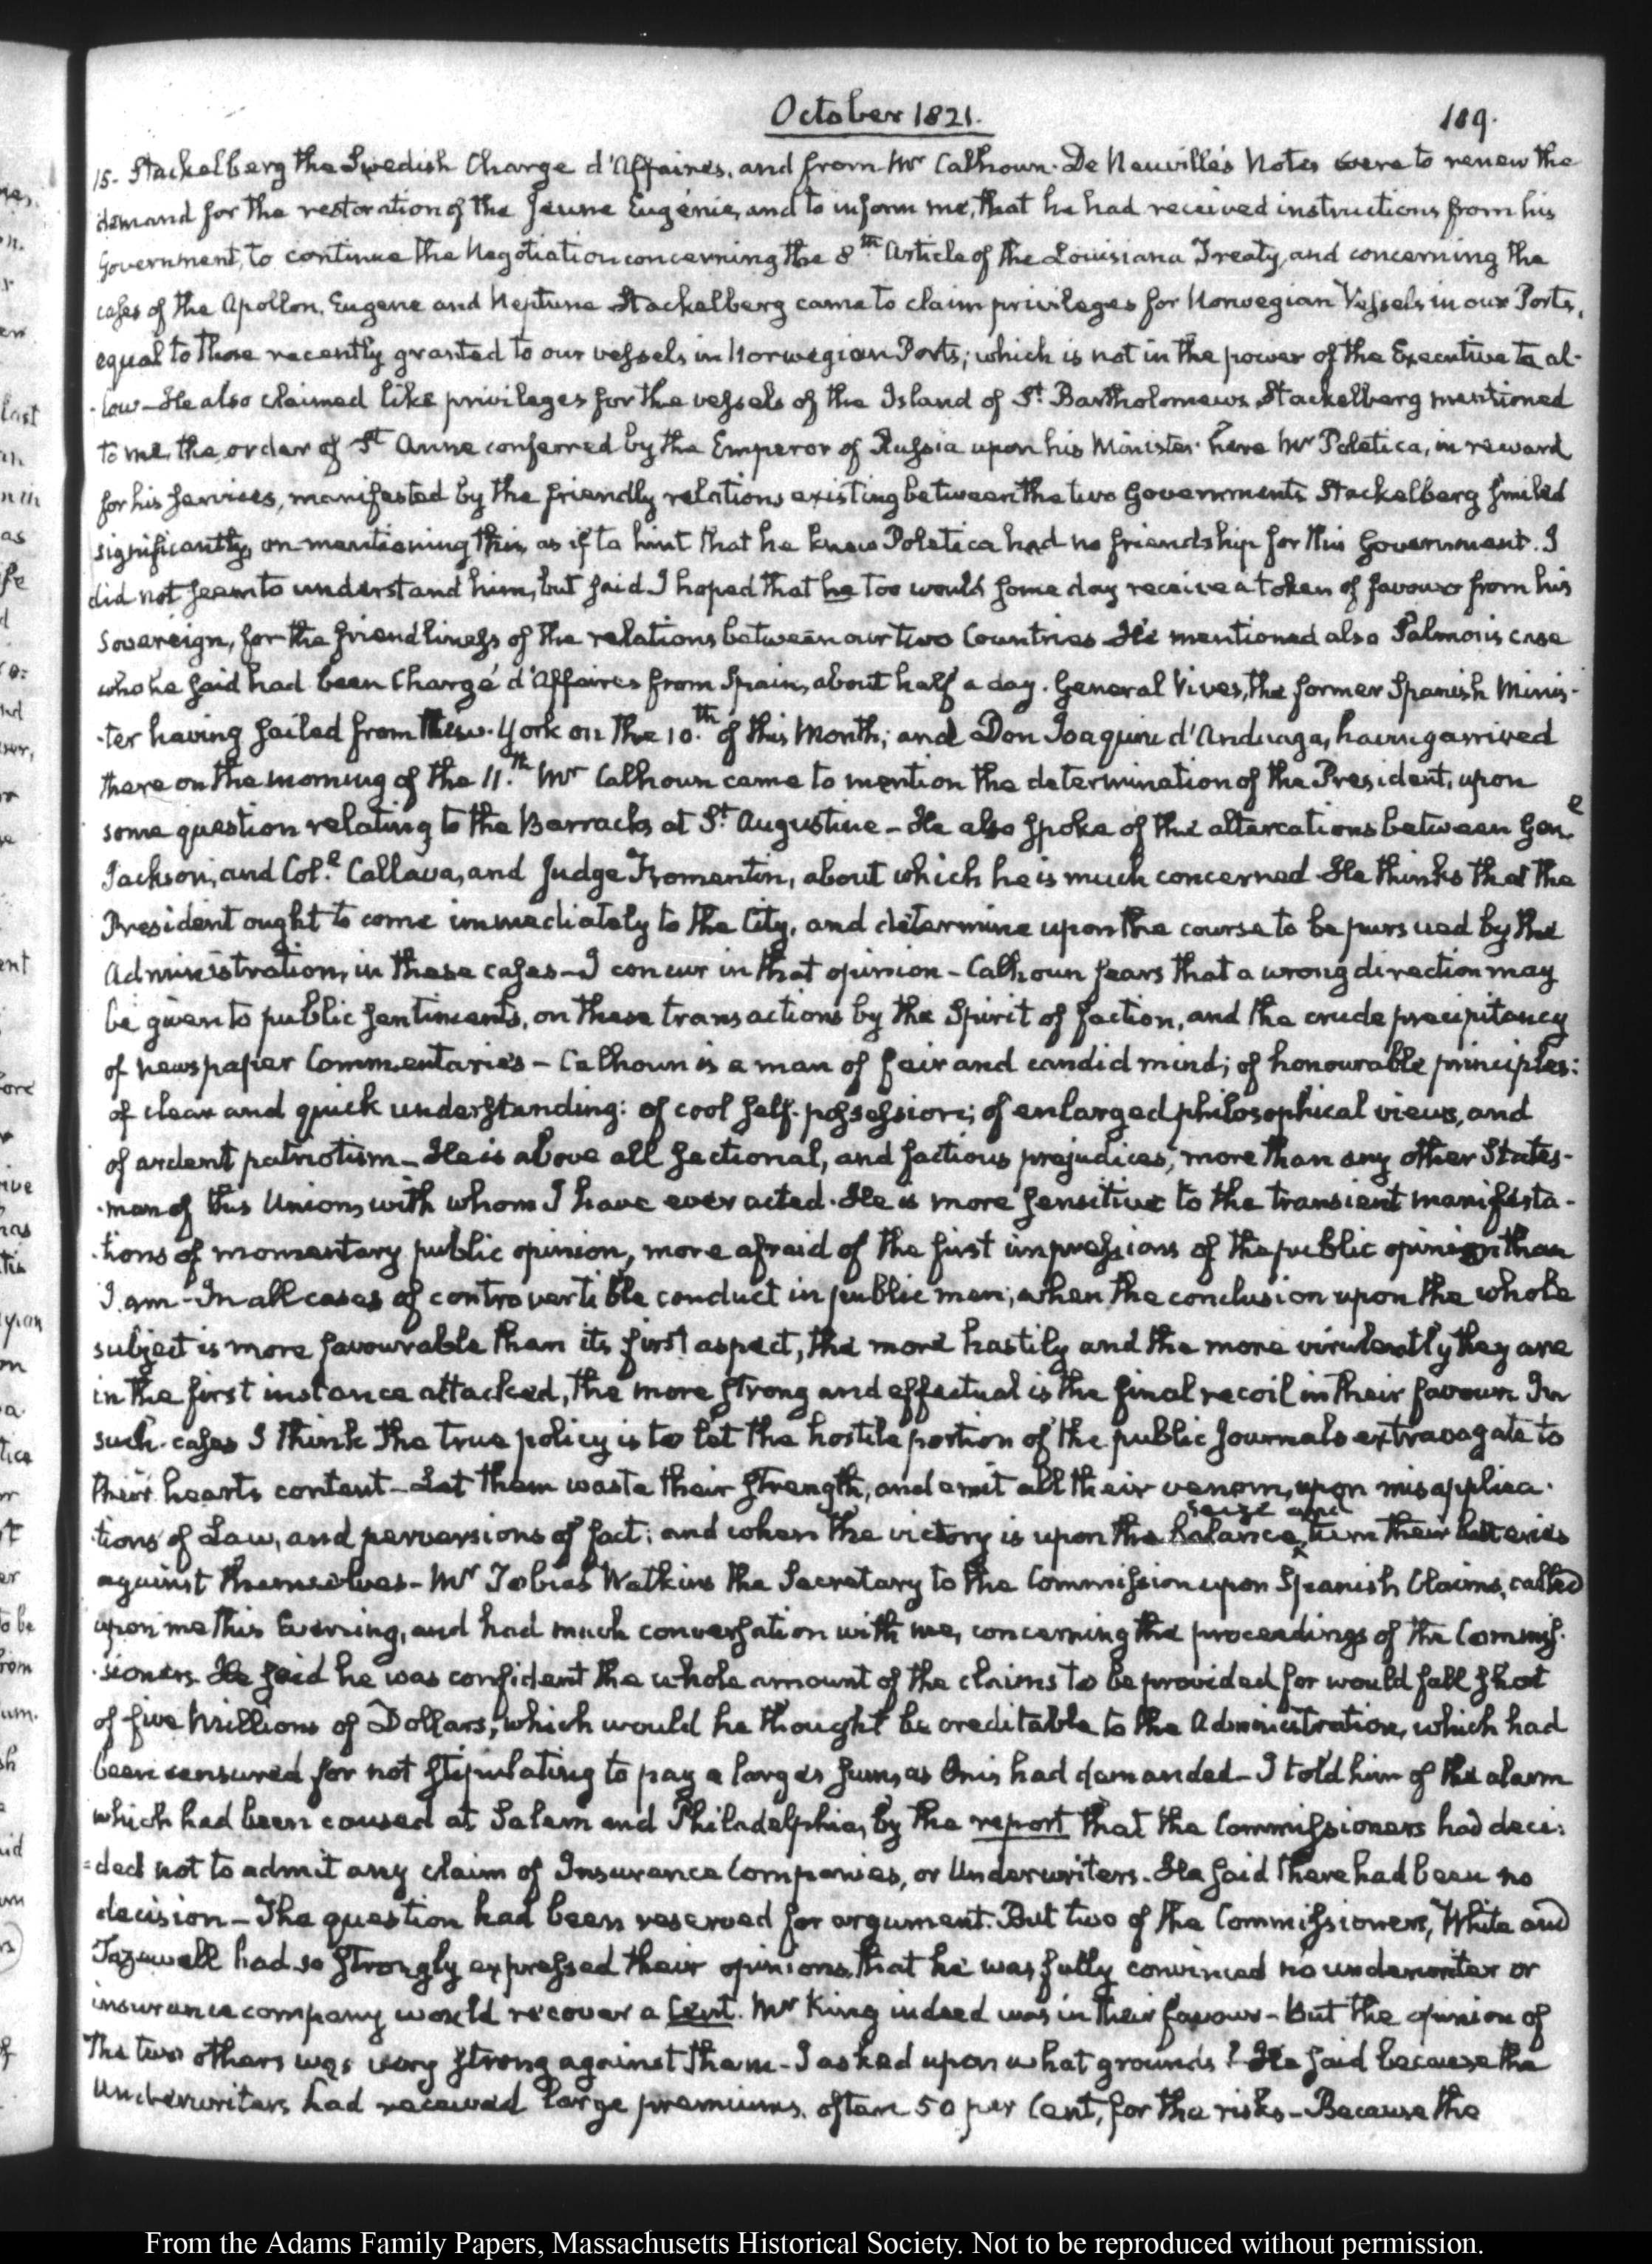 October 1821.
189.
15. Stackelberg the Swedish Charge d'Affaires, and from Mr Calhoun. De Neuville's Notes were to renew the
demand for the restoration of the Jeune Eugénie, and to inform me, that he had received instructions from his
Government, to continue the Negotiation concerning the 8th Article of the Louisiana Treaty, and concerning the
cases of the Apollon, Eugene and Neptune Stackelberg came to claim privileges for Norwegian Vessels in our Ports,
equal to those recently granted to our vessels in Norwegian Ports; which is not in the power of the Executive to al-
-low— He also claimed like privileges for the vessels of the Island of St. Bartholomews. Stackelberg mentioned
to me, the order of St Anne conferred by the Emperor of Russia upon his Minister here Mr Poletica, in reward
for his services, manifested by the friendly relations existing between the two Governments Stackelberg smiled
significantly, on mentioning this, as if to hint that he knew Poletica had no friendship for this Government. I
did not seem to understand him, but said I hoped that he too would some day receive a token of favour from his
Sovereign, for the friendliness of the relations between our two Countries He mentioned also Salmon's case
who he said had been Chargé d'Affaires from Spain, about half a day. General Vives, the former Spanish Minis-
-ter having sailed from New-York on the 10.th of this Month; and Don Joaquin d'Anduaga, having arrived
there on the morning of the 11.th Mr Calhoun came to mention the determination of the President, upon
some question relating to the Barracks at St Augustine— He also spoke of the altercations between Gen.l
Jackson, and Col.l Callava, and Judge Fromentin, about which he is much concerned He thinks that the
President ought to come immediately to the City, and determine upon the course to be pursued by the
Administration, in these cases— I concur in that opinion— Calhoun fears that a wrong direction may
be given to public sentiments, on these transactions by the Spirit of faction, and the crude precipitancy
of newspaper Commentaries— Calhoun is a man of fair and candid mind; of honourable principles:
of clear and quick understanding: of cool self-possession; of enlarged philosophical views, and
of ardent patriotism— He is above all sectional, and factious prejudices, more than any other States-
-man of this Union, with whom I have ever acted. He is more sensitive to the transient manifesta-
-tions of momentary public opinion, more afraid of the first impressions of the public opinion than
I am— In all cases of controvertible conduct in public men, when the conclusion upon the whole
subject is more favourable than its first aspect, the more hastily and the more virulently they are
in the first instance attacked, the more strong and effectual is the final recoil in their favour. In
such cases I think the true policy is to let the hostile portion of the public Journals extravagate to
their hearts content— Let them waste their strength, and emit all their venom, upon misapplica-
-tions of Law, and perversions of fact; and when the victory is upon the balance, seize and turn their batteries
against themselves— Mr Tobias Watkins the Secretary to the Commission upon Spanish Claims, called
upon me this Evening, and had much conversation with me, concerning the proceedings of the Commis-
-sioners. He said he was confident the whole amount of the claims to be provided for would fall short
of five Millions of Dollars, which would he thought be creditable to the Administration, which had
been censured for not stipulating to pay a larger sum, as Onis had demanded— I told him of the alarm
which had been caused at Salem and Philadelphia, by the report that the Commissioners had deci-
=ded not to admit any claim of Insurance Companies, or Underwriters. He said there had been no
decision— The question had been reserved for argument. But two of the Commissioners, White and
Tazewell had so strongly expressed their opinions, that he was fully convinced no underwriter or
insurance company would recover a Cent. Mr King indeed was in their favour— But the opinion of
the two others was very strong against them— I asked upon what grounds? He said because the
Underwriters had received large premiums, often 50 per Cent, for the risks— Because the
From the Adams Family Papers, Massachusetts Historical Society. Not to be reproduced without permission.